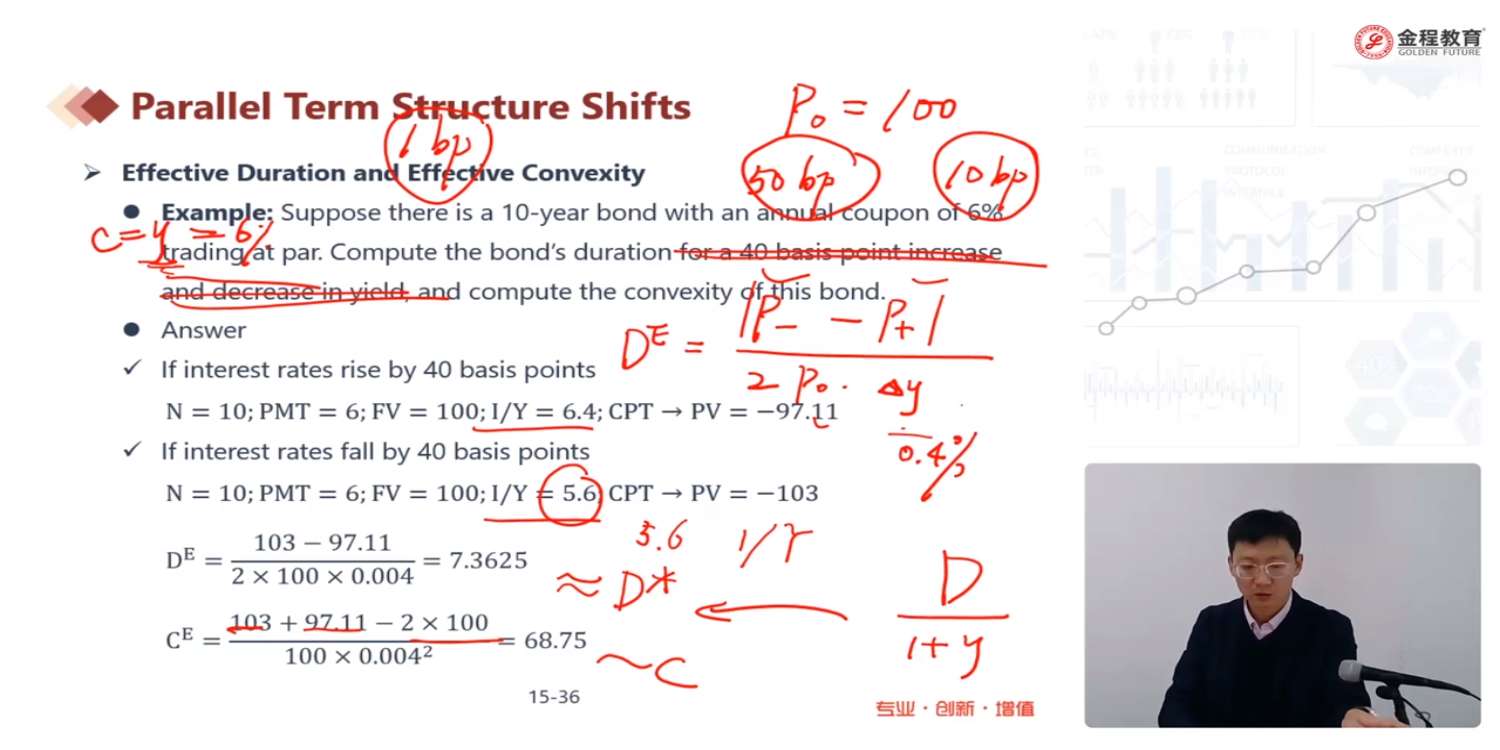 金程教育
GOLDEN FUTURE
Parallel Term Structure Shifts
P₀ = 100
1 bp
50 bp
10 bp
➢ Effective Duration and Effective Convexity
● Example: Suppose there is a 10-year bond with an annual coupon of 6%
C = y = 6%
trading at par. Compute the bond's duration for a 40 basis point increase
and decrease in yield, and compute the convexity of this bond.
● Answer
Dᴱ = |P₋ − P₊| / 2 P₀ · Δy
✓ If interest rates rise by 40 basis points
N = 10; PMT = 6; FV = 100; I/Y = 6.4; CPT → PV = −97.11
0.4%
✓ If interest rates fall by 40 basis points
N = 10; PMT = 6; FV = 100; I/Y = 5.6; CPT → PV = −103
5.6 I/Y
Dᴱ = (103 − 97.11) / (2 × 100 × 0.004) = 7.3625
≈ D* ← D / 1+y
Cᴱ = (103 + 97.11 − 2 × 100) / (100 × 0.004²) = 68.75
~ C
15-36
专业・创新・增值